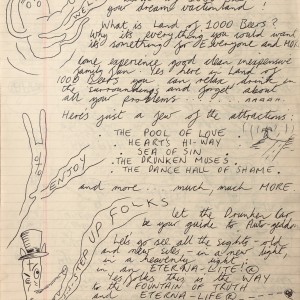 your dream vacationland!
WEL
What is Land of 1000 Bears?
Why its everything you could want
its something for EVeryone and MORE
Come experience good clean inexpensive
family fun. Yes here in Land of
1000 Bears you can relax, drink in
the surroundings and forget about
all your problems
Here's just a few of the attractions:
. THE POOL OF LOVE
. HEART'S HI-WAY
. SEA OF SIN
. THE DRUNKEN MUSES.
. THE DANCE HALL OF SHAME.
ENJOY
and more... much, much MORE.
STEP UP FOLKS
let the Drunken
be your guide to
Let's go see all the sights - old
and new sites, in a new light,
in a heavenly light
in, an, ETERNA-LITE! ®
Yes folks this is the WAY
to the FOUNTAIN OF TRUTH
and ETERNA-LIFE ®